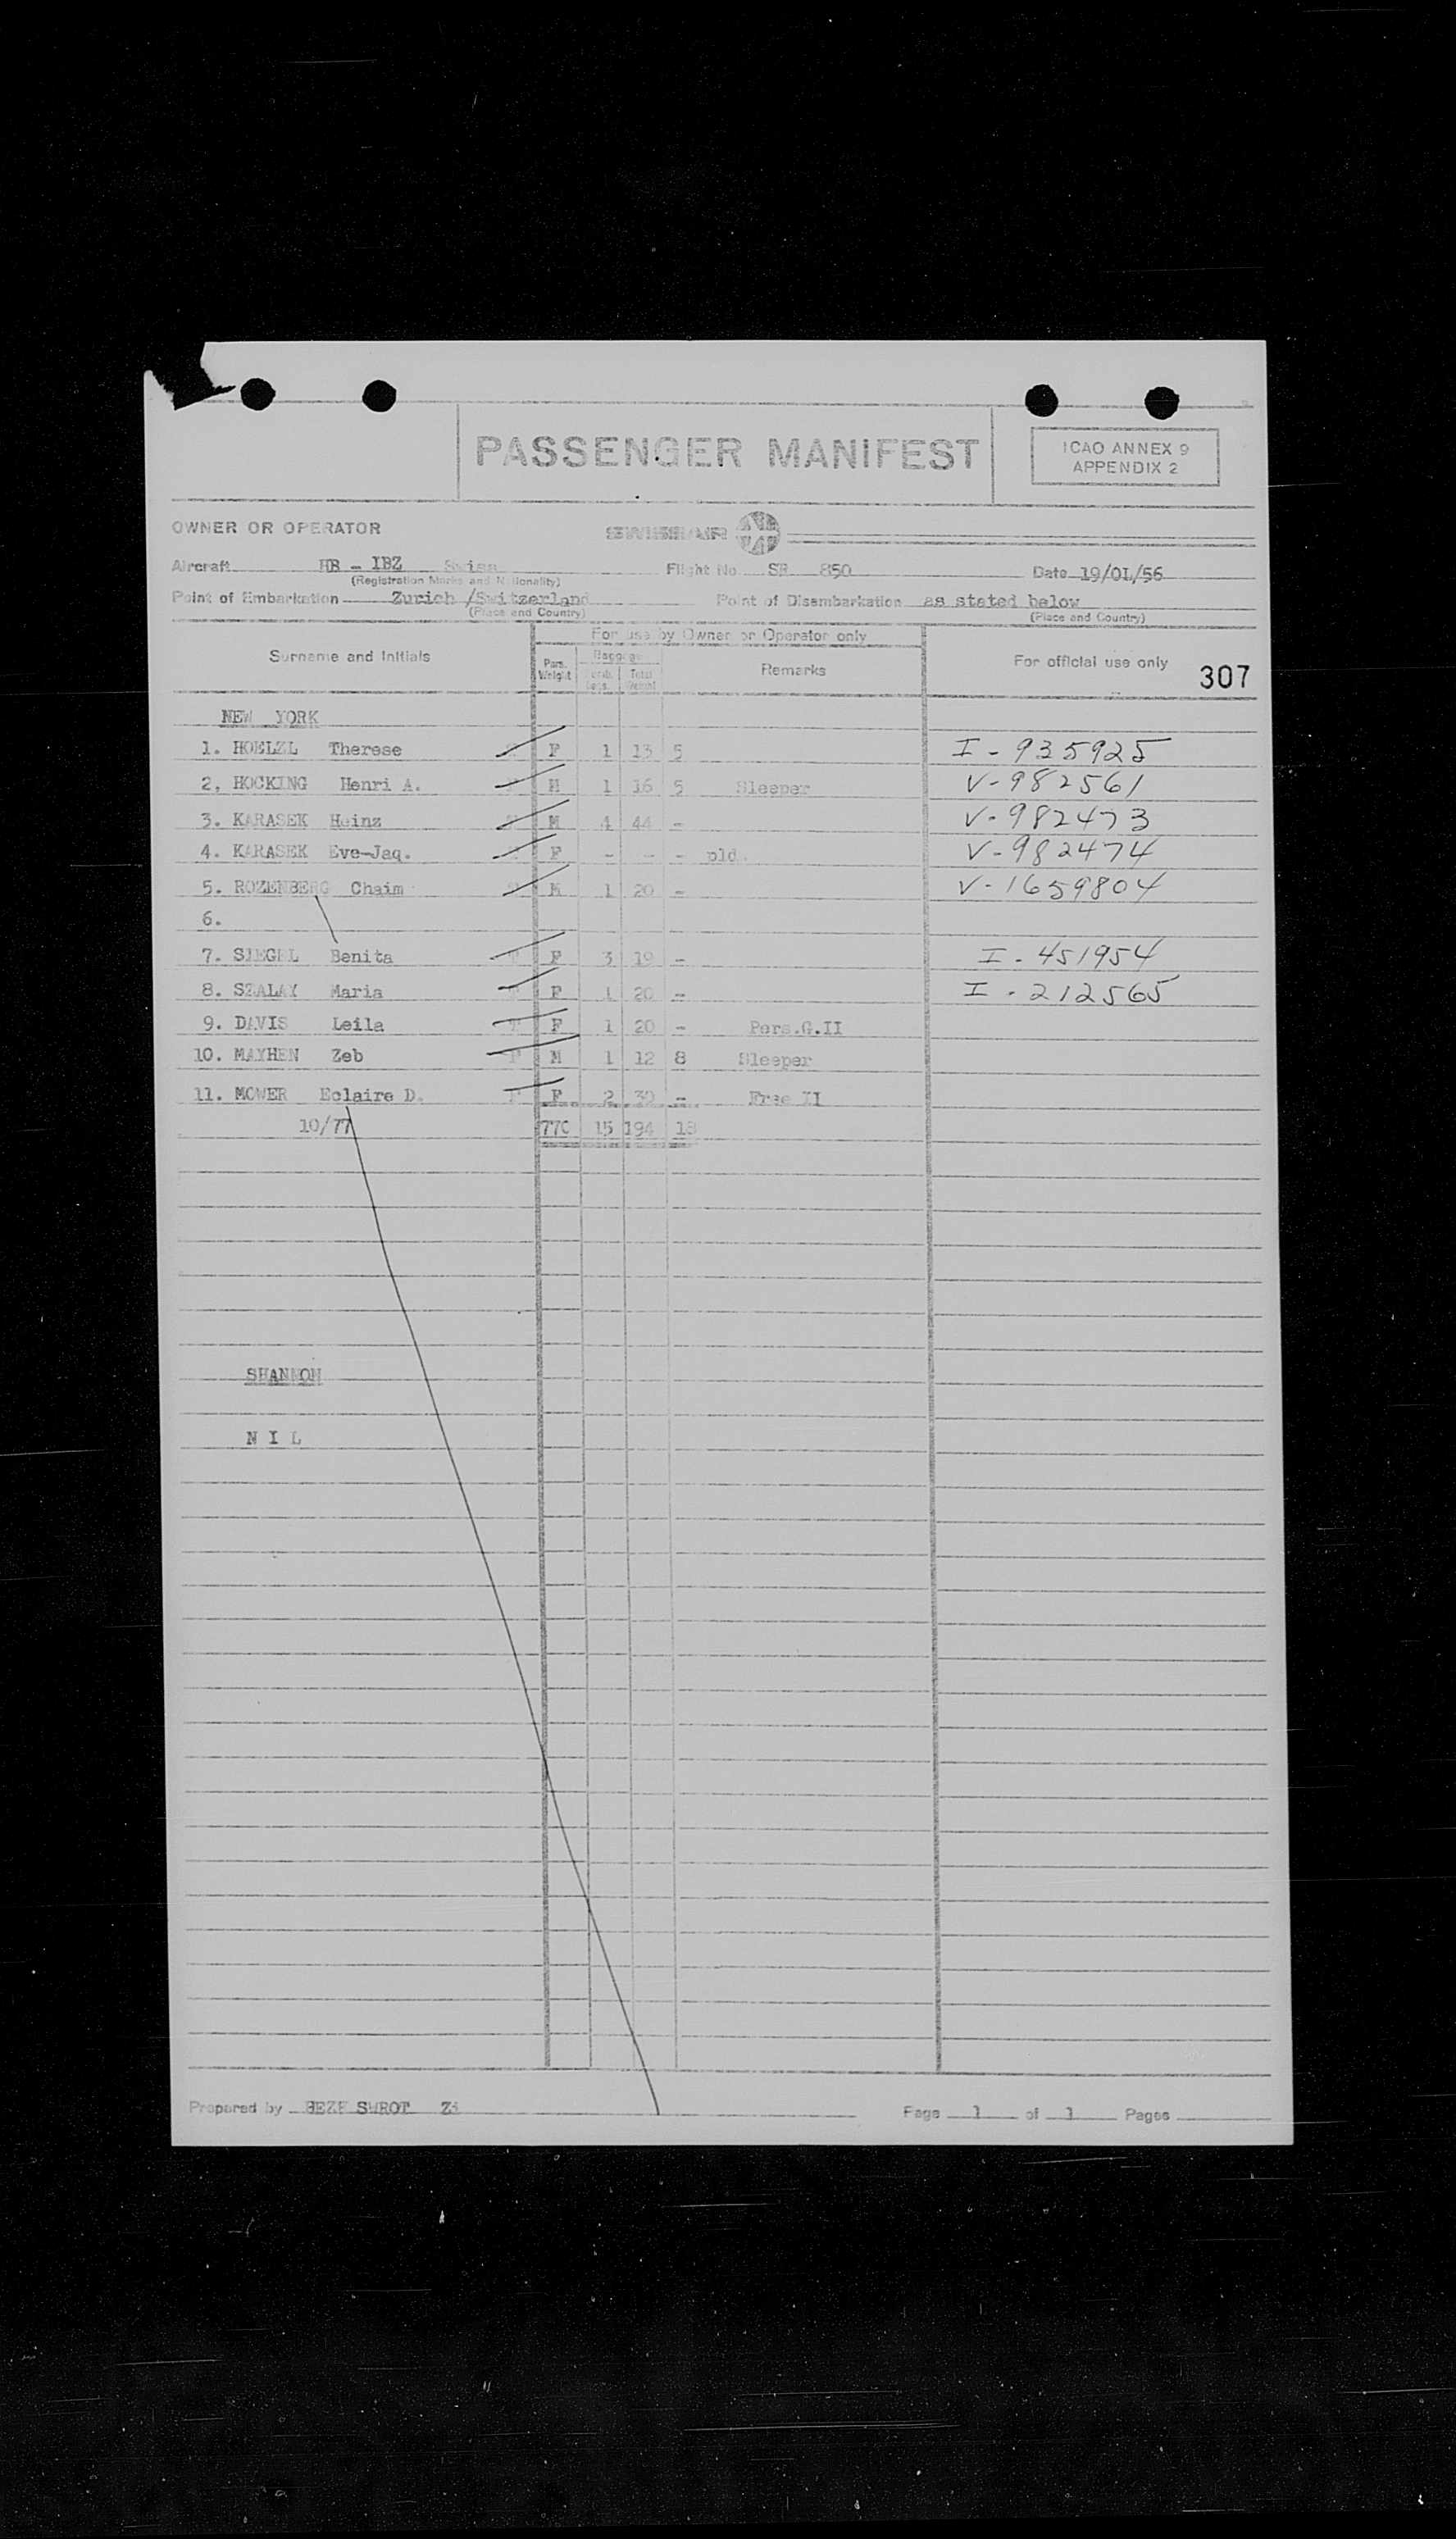 PASSENGER MANIFEST
ICAO ANNEX 9
APPENDIX 2
OWNER OR OPERATOR SWISSAIR
Aircraft HB - IBZ Swiss Flight No SR 850 Date 19/01/56
(Registration Marks and Nationality)
Point of Embarkation Zurich /Switzerland Point of Disembarkation as stated below
(Place and Country) (Place and Country)
For use by Owner or Operator only
Surname and Initials Pass. Weight Baggage Total Weight Remarks For official use only 307
NEW YORK
1. HOELZL Therese F 1 13 5 I - 935925
2. HOCKING Henri A. M 1 16 5 Sleeper V-982561
3. KARASEK Heinz M 4 44 - V-982473
4. KARASEK Eve-Jaq. F - - - pld. V-982474
5. ROZENBERG Chaim M 1 20 - V-1659804
6.
7. SIEGEL Benita F 3 19 - I-451954
8. SZALAY Maria F 1 20 - I-212565
9. DAVIS Leila F F 1 20 - Pers.G.II
10. MAYHEN Zeb F M 1 12 8 Sleeper
11. MOWER Eclaire D. F F 2 30 - Free II
10/77 770 15 194 18
SHANNON
N I L
Prepared by SWROT Page 1 of 1 Pages